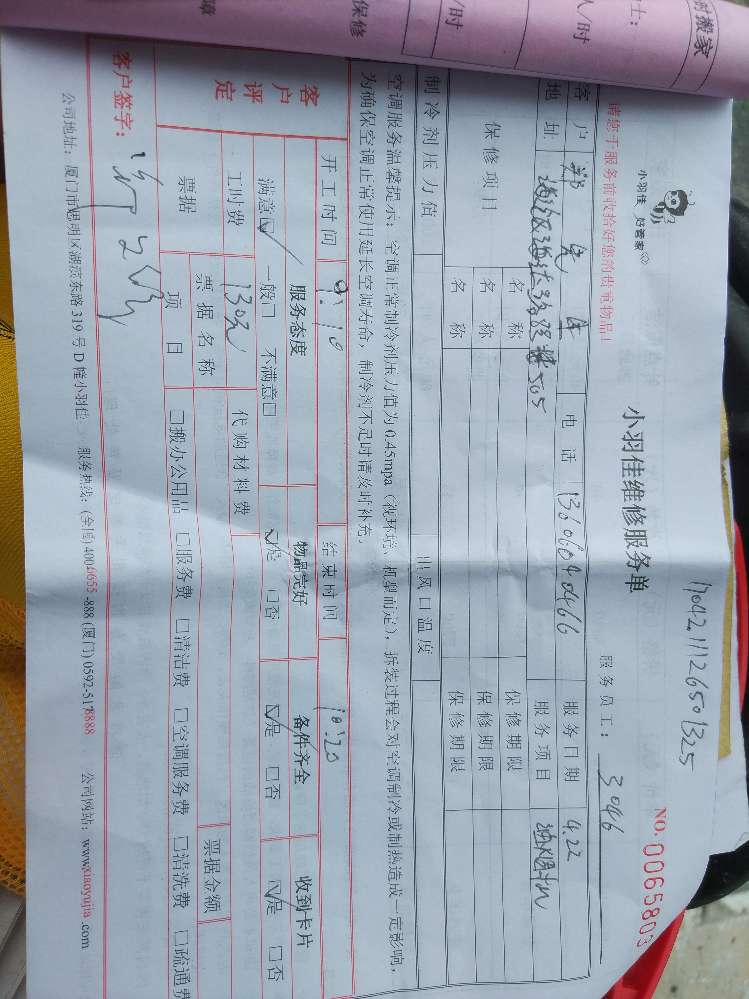 时搬家
士：
人/时
/时
保修
小羽佳 好管家
1704211126501325
NO. 0065803
小羽佳维修服务单
服务员工： 3046
请您于服务前收拾好您的贵重物品！
客户 电话 13606040466 服务日期 4.22
地址 505 服务项目 油烟机
保修项目 名称 保修期限
名称 保修期限
名称 保修期限
制冷剂压力值 出风口温度
空调服务温馨提示：空调正常制冷剂压力值为0.45mpa（视环境、机型而定），拆装过程会对空调制冷或制热造成一定影响，
为确保空调正常使用延长空调寿命，制冷剂不足时请及时补充。
开工时间 9:10 结束时间 10:20
客户评定 服务态度 物品完好 备件齐全 收到卡片
满意☑ 一般□ 不满意□ ☑是 □否 ☑是 □否 ☑是 □否
工时费 130元 代购材料费
票据 票据名称 票据金额
项目 □搬办公用品 □服务费 □清洁费 □空调服务费 □清洗费 □疏通费
客户签字：
公司地址：厦门市思明区湖滨东路319号D幢小羽佳 服务热线：(全国)4004655-888 (厦门)0592-5178888 公司网站：www.xiaoyujia.com